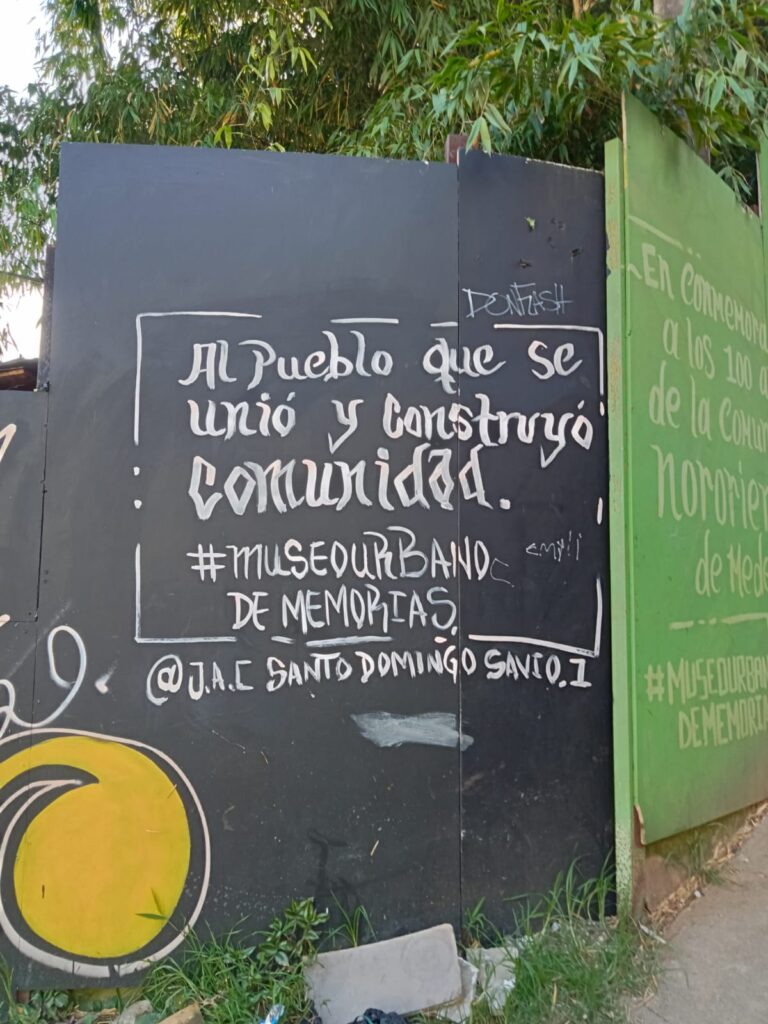 DONKASH
Al Pueblo que se
unió y construyó
comunidad.
#MUSEOURBANO
DE MEMORIAS.
@J.A.C SANTO DOMINGO SAVIO.1
En Conmemora
a los 100 a
de la Comun
Nororien
de Mede
#MUSEOURBAN
DE MEMORIA